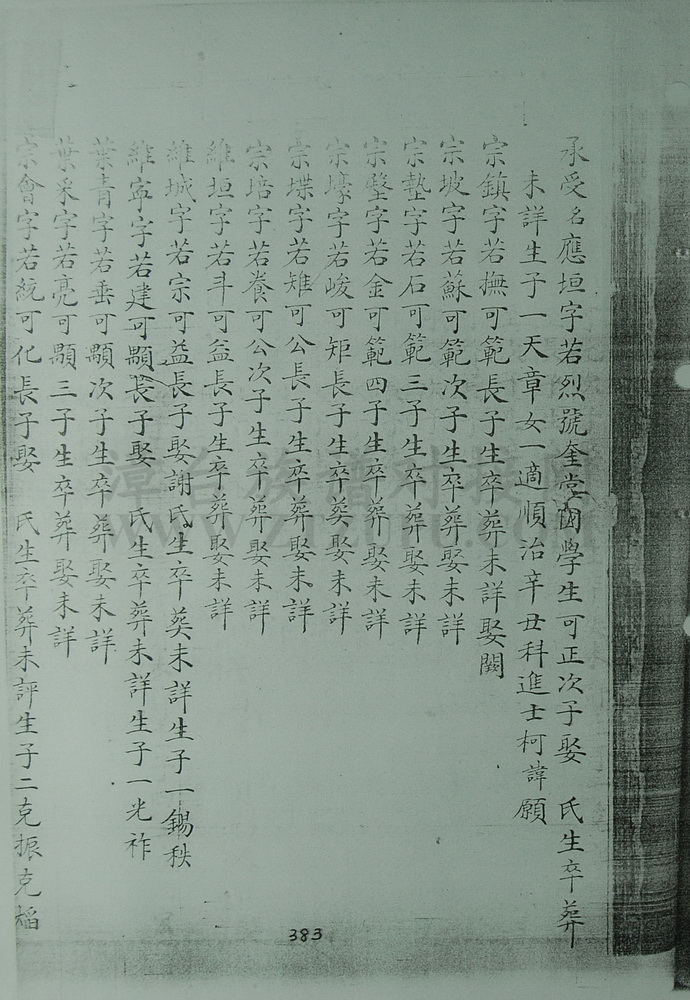 承受名應垣字若烈號奎堂國學生可正次子娶 氏生卒葬
未詳生子一天章女一適順治辛丑科進士柯諱願
宗鎮字若撫可範長子生卒葬未詳娶闕
宗坡字若蘇可範次子生卒葬娶未詳
宗墊字若石可範三子生卒葬娶未詳
宗壂字若金可範四子生卒葬娶未詳
宗壕字若峻可矩長子生卒葬娶未詳
宗堞字若雉可公長子生卒葬娶未詳
宗培字若養可公次子生卒葬娶未詳
維垣字若斗可益長子生卒葬娶未詳
維城字若宗可益長子娶謝氏生卒葬未詳生子一錫秩
維寧字若建可顯長子娶 氏生卒葬未詳生子一光祚
葉青字若垂可顯次子生卒葬娶未詳
葉采字若亮可顯三子生卒葬娶未詳
宗會字若統可化長子娶 氏生卒葬未評生子二克振克
383